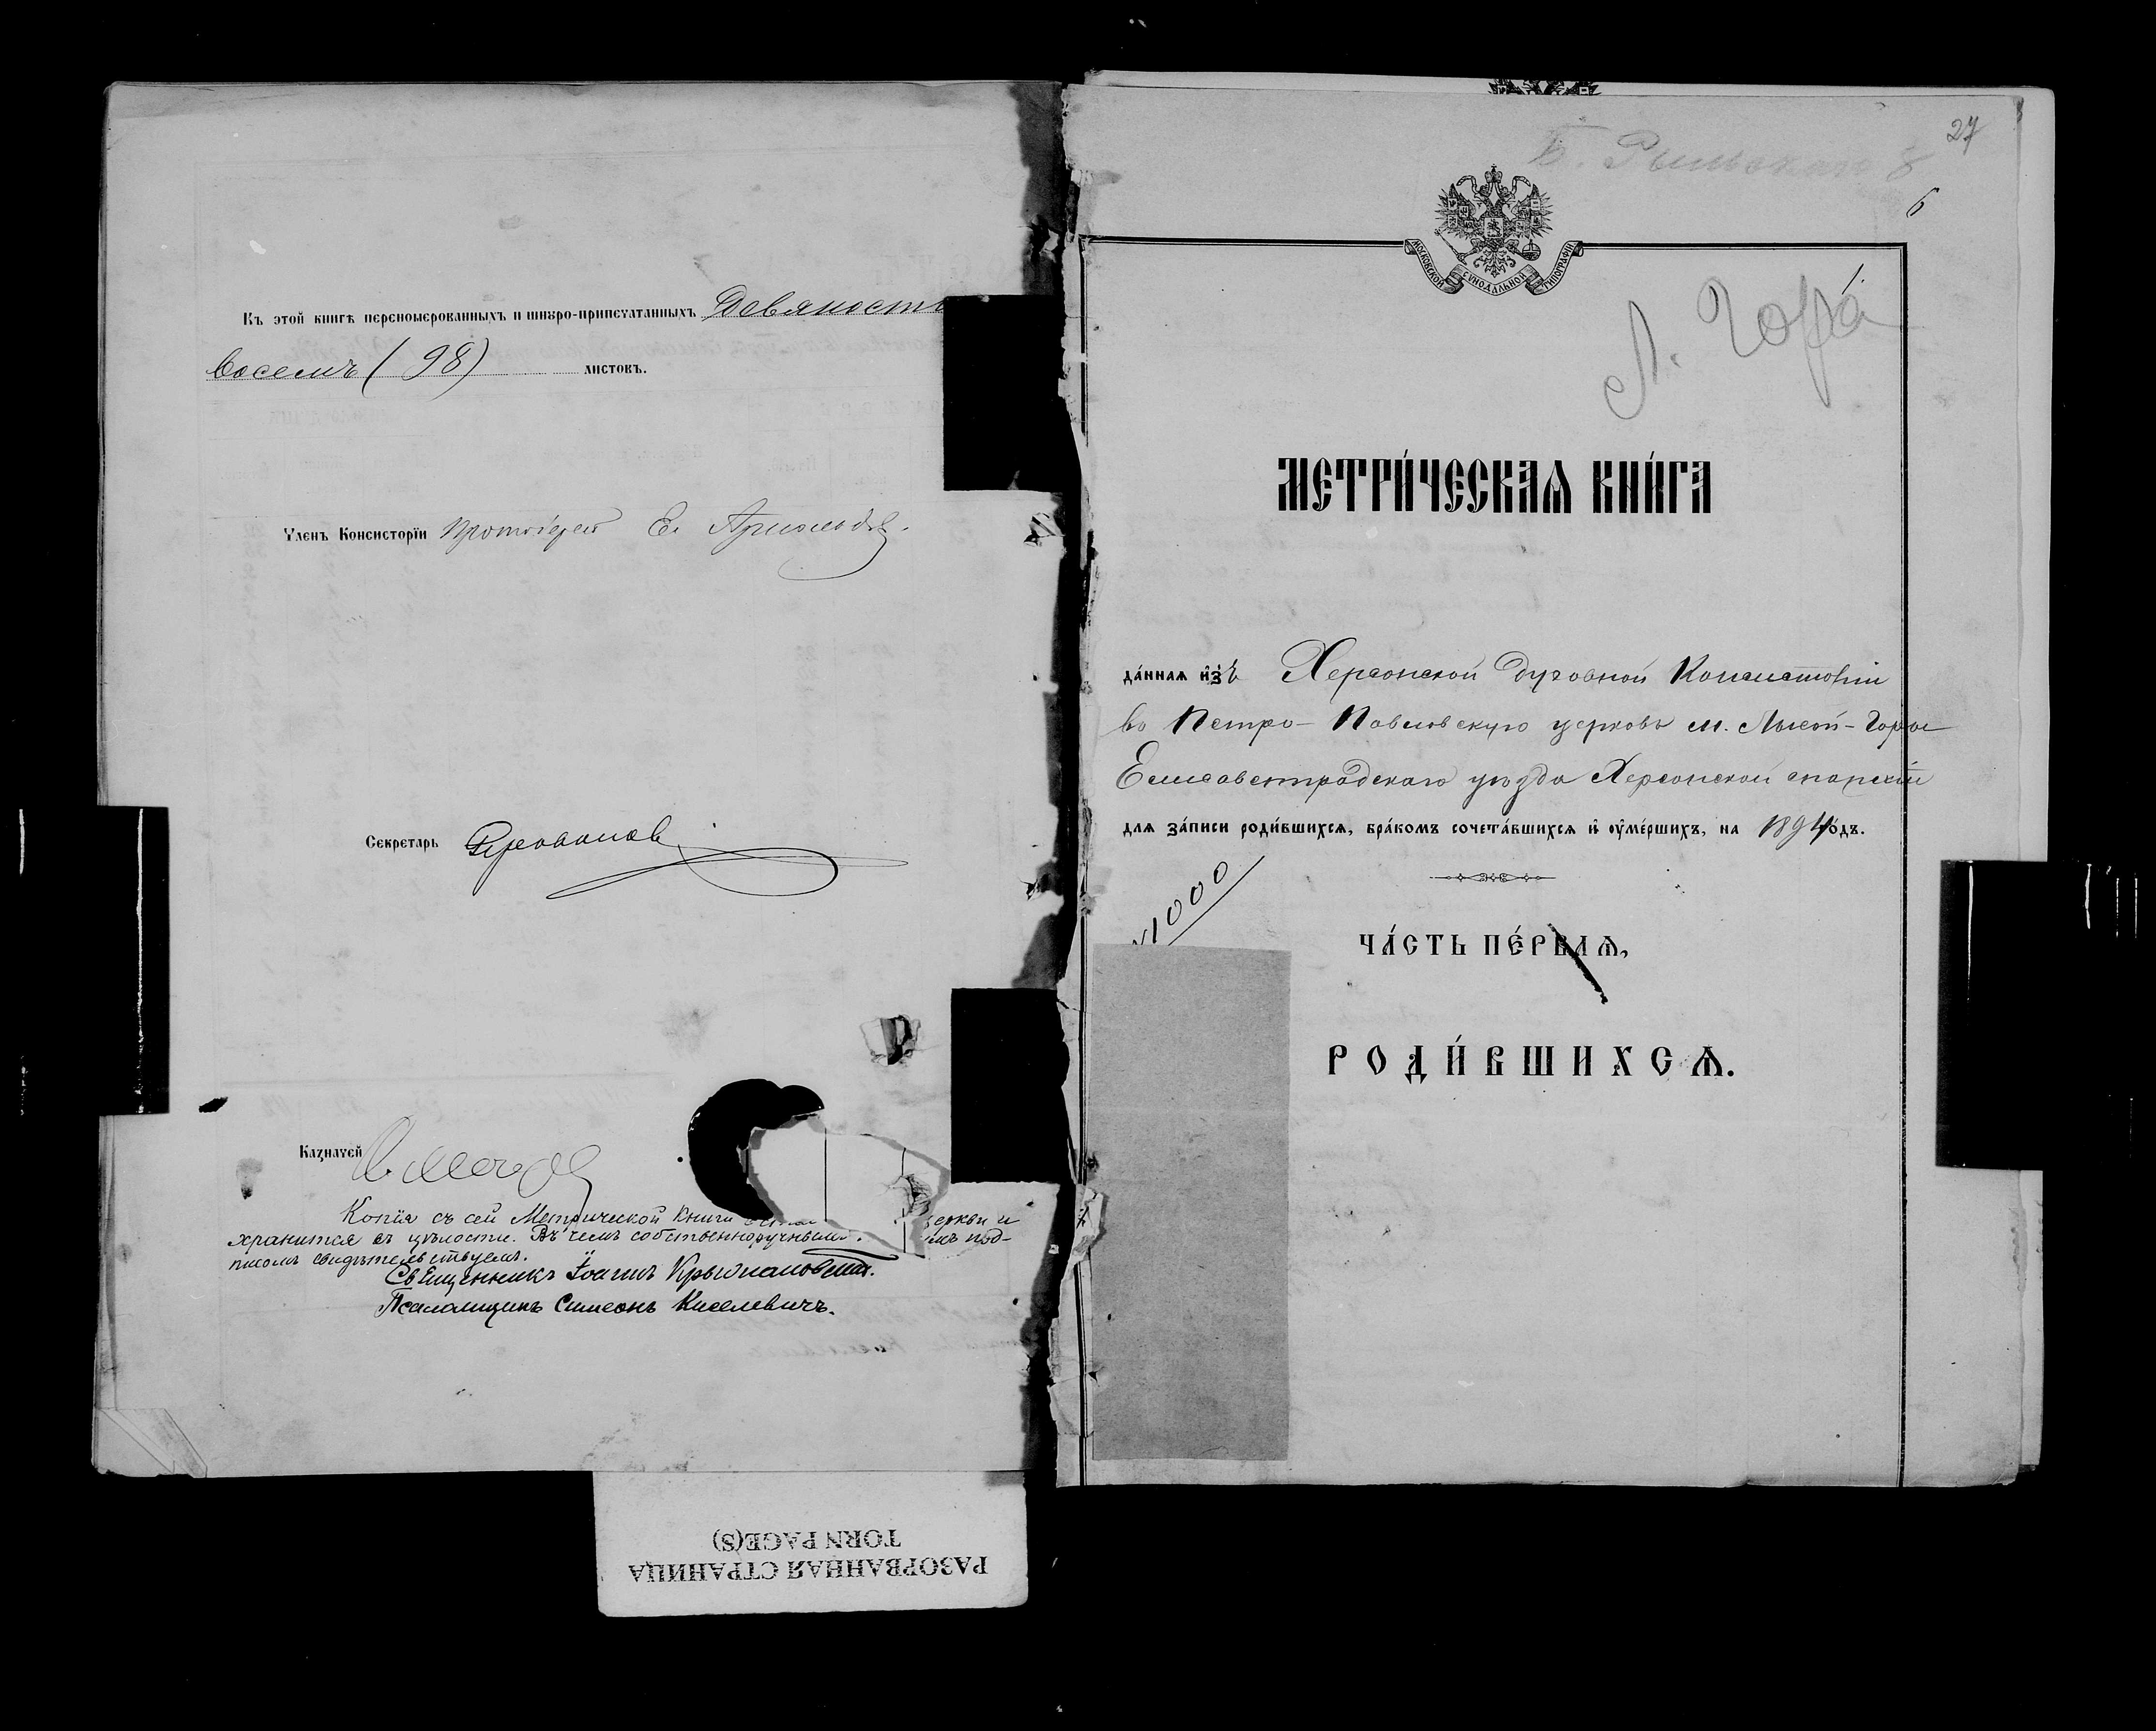 Въ этой книгѣ перенумерованныхъ и шнуро-припечатанныхъ Девяносто
восемь (98) листовъ.
Членъ Консисторіи Протоіерей
Секретарь
Казначей
Копія съ сей Метрической книги церкви и
хранится въ цѣлости. Въ чемъ собственноручнымъ под-
писомъ свидѣтельствуемъ.
Священникъ Іоаннъ Крыжановскій.
Псаломщикъ Симеонъ Киселевичъ.
РАЗОРВАННАЯ СТРАНИЦА
TORN PAGE(S)
27
6
МОСКОВСКОЙ СѴНОДАЛЬНОЙ ТИПОГРАФІИ
Л. Гора
МЕТРИ́ЧЕСКАѦ КНИ́ГА
да́ннаѧ и҆зъ Херсонской Духовной Консисторіи
въ Петро-Павловскую церковь м. Лысой-Горы
Елисаветградскаго уѣзда Херсонской епархіи
длѧ за́писи роди́вшихсѧ, бра́комъ сочета́вшихсѧ и҆ ѹ҆ме́ршихъ, на 1894 го́дъ.
1000
ЧА́СТЬ ПЕ́РВАѦ,
РОДИ́ВШИХСѦ.